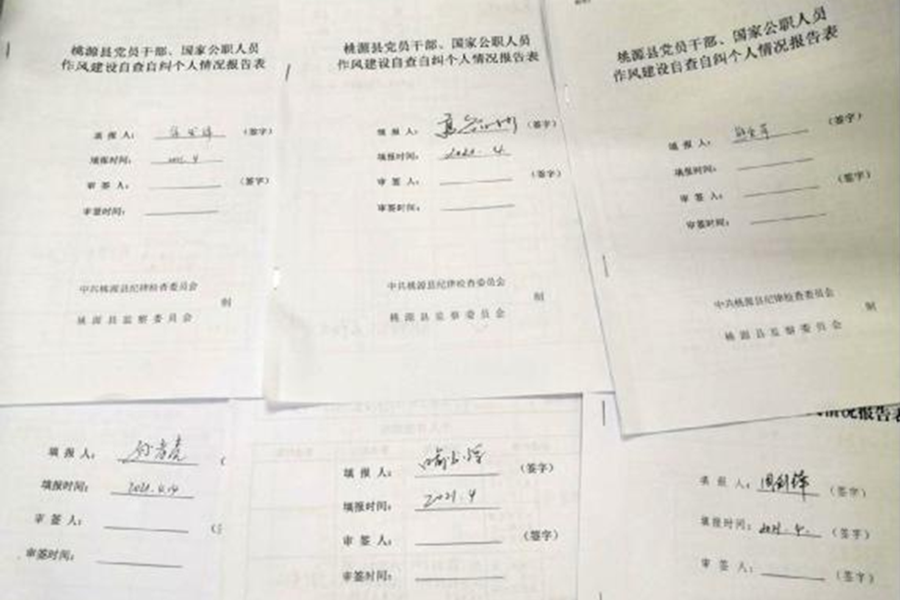 桃源县党员干部、国家公职人员
作风建设自查自纠个人情况报告表
填 报 人： （签字）
填报时间： 2021.4
审 签 人： （签字）
审签时间：
中共桃源县纪律检查委员会
桃源县监察委员会
制
桃源县党员干部、国家公职人员
作风建设自查自纠个人情况报告表
填 报 人： （签字）
填报时间： 2021.4.
审 签 人： （签字）
审签时间：
中共桃源县纪律检查委员会
桃源县监察委员会
制
桃源县党员干部、国家公职人员
作风建设自查自纠个人情况报告表
填 报 人： （签字）
填报时间：
审 签 人： （签字）
审签时间：
中共桃源县纪律检查委员会
桃源县监察委员会
制
填 报 人：
填报时间： 2021.4.14
审 签 人：
审签时间：
填 报 人： （签字）
填报时间： 2021.4
审 签 人： （签字）
审签时间：
情况报告表
填 报 人： （签字）
填报时间： 2021.4. （签字）
审 签 人： （签字）